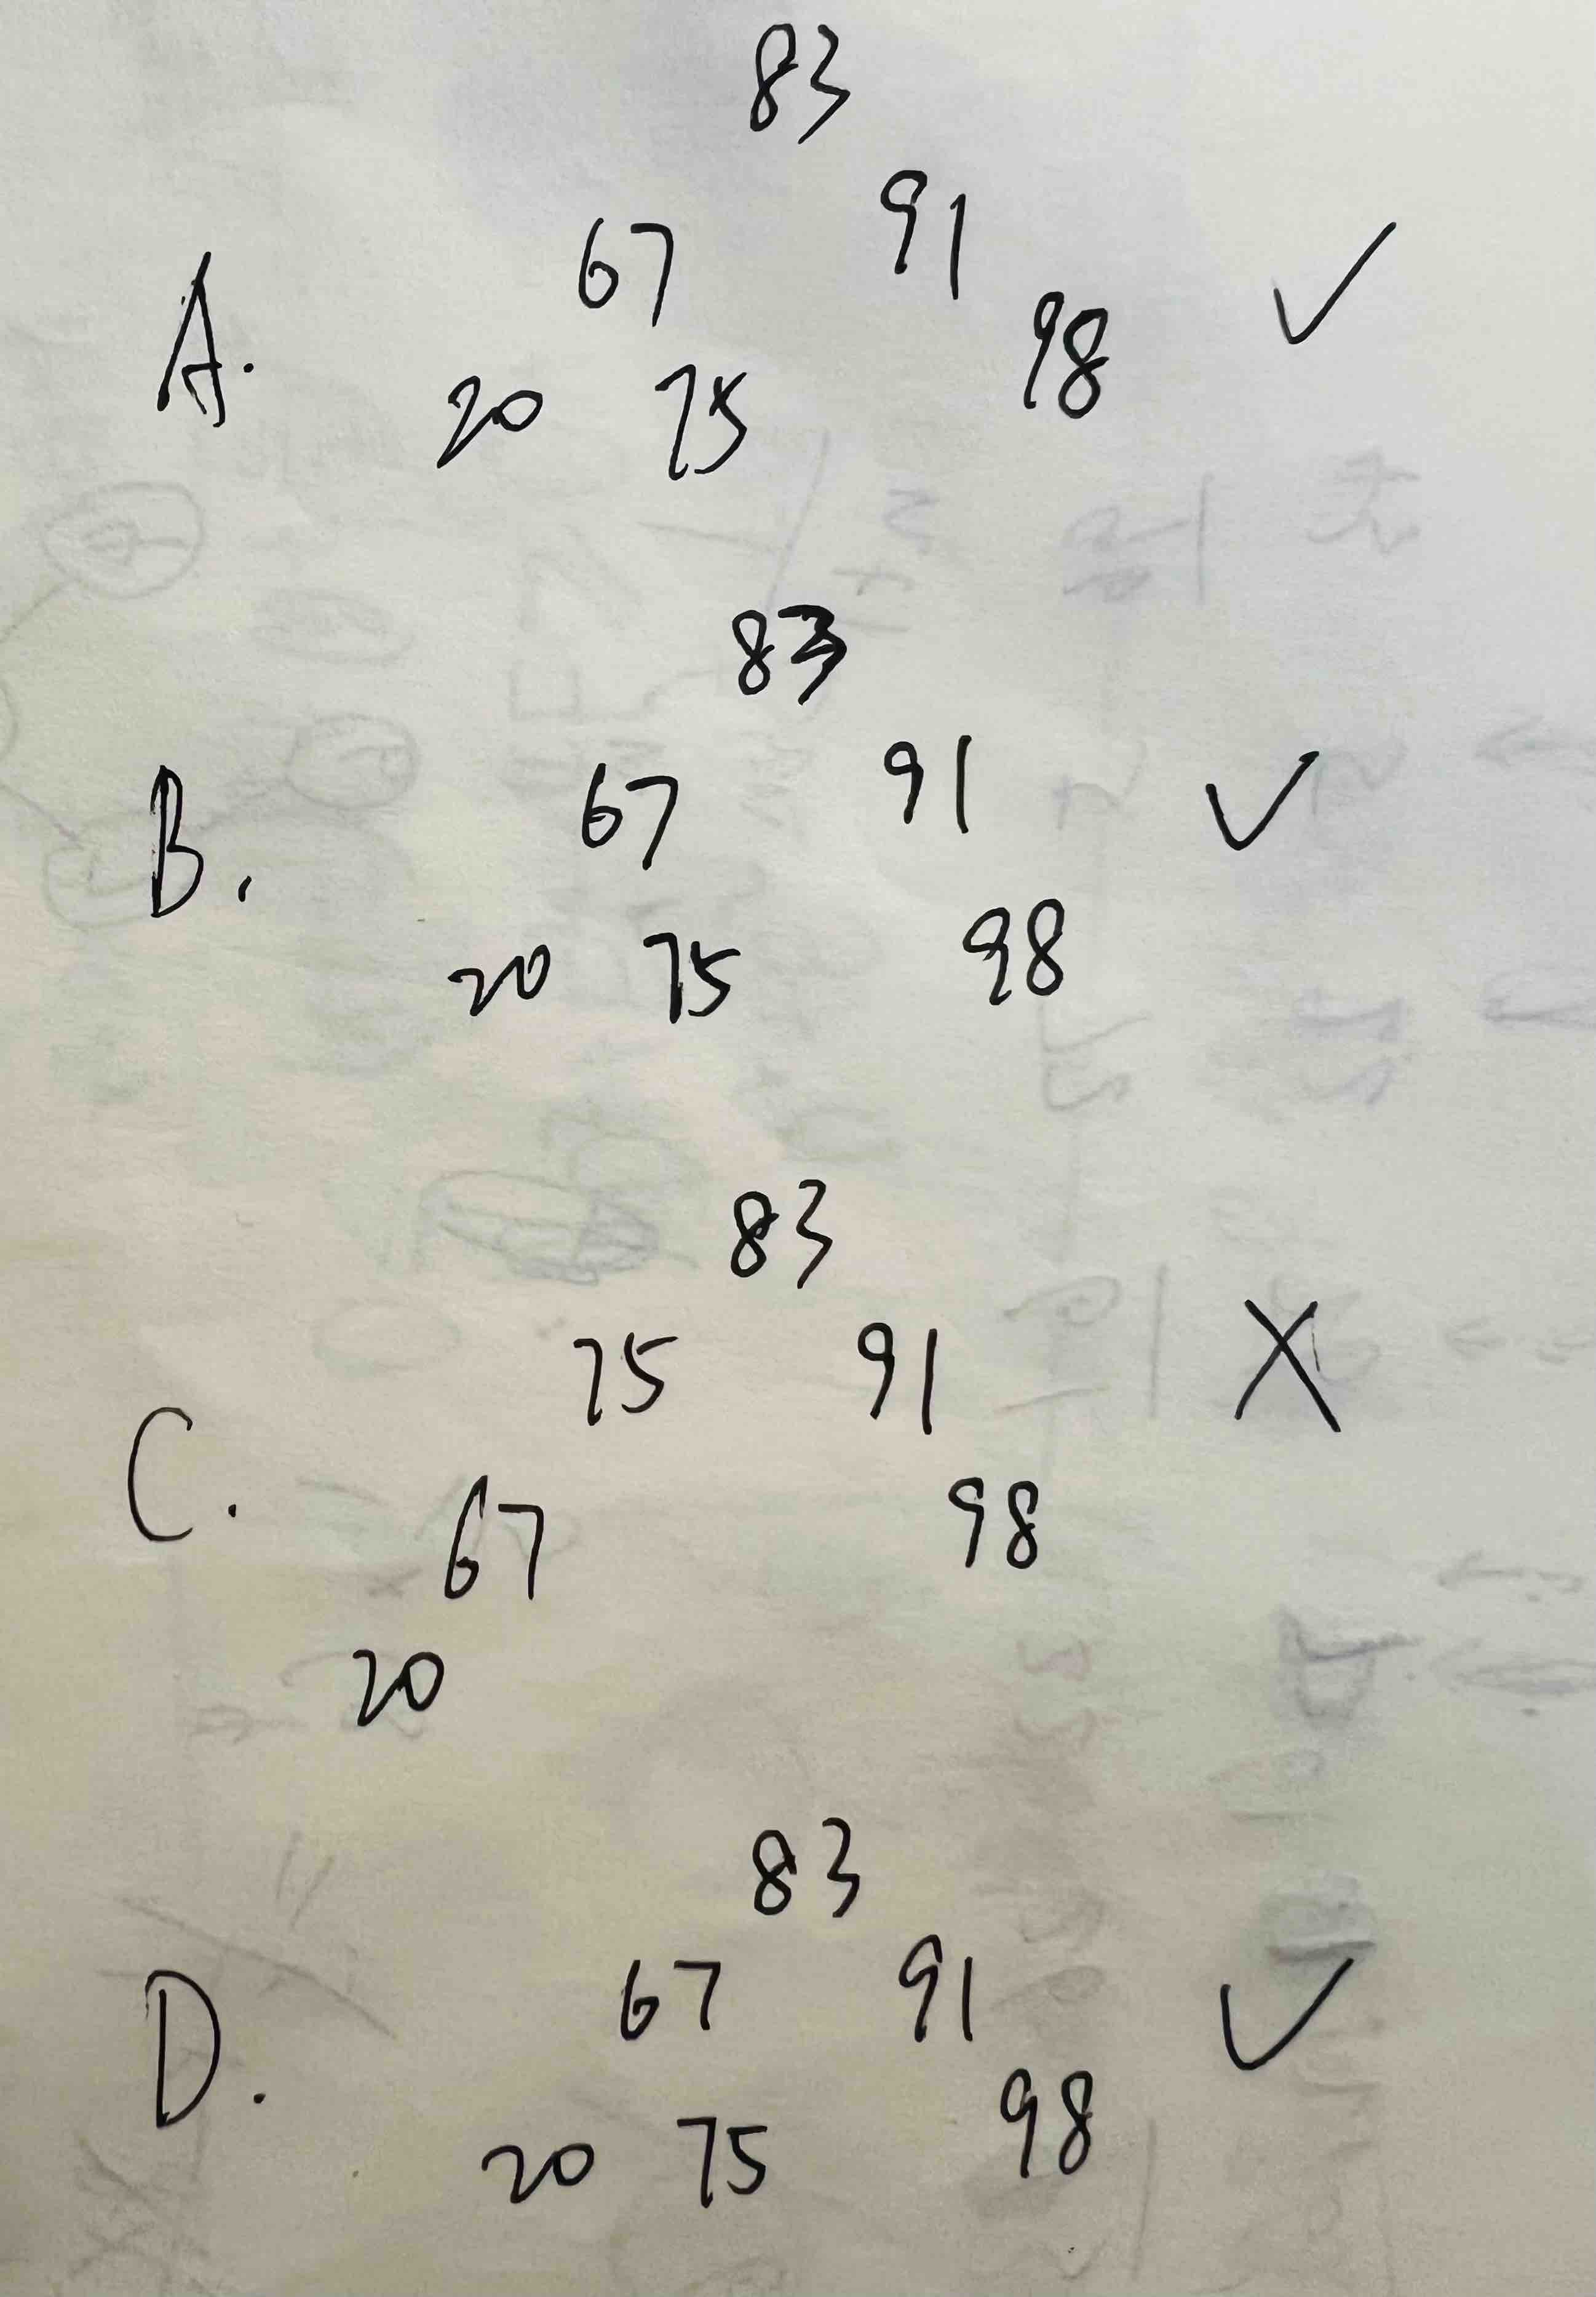 83
67 91 ✓
A. 20 75 98
83
67 91 ✓
B. 20 75 98
83
75 91 X
C. 67 98
20
83
67 91 ✓
D. 98
20 75